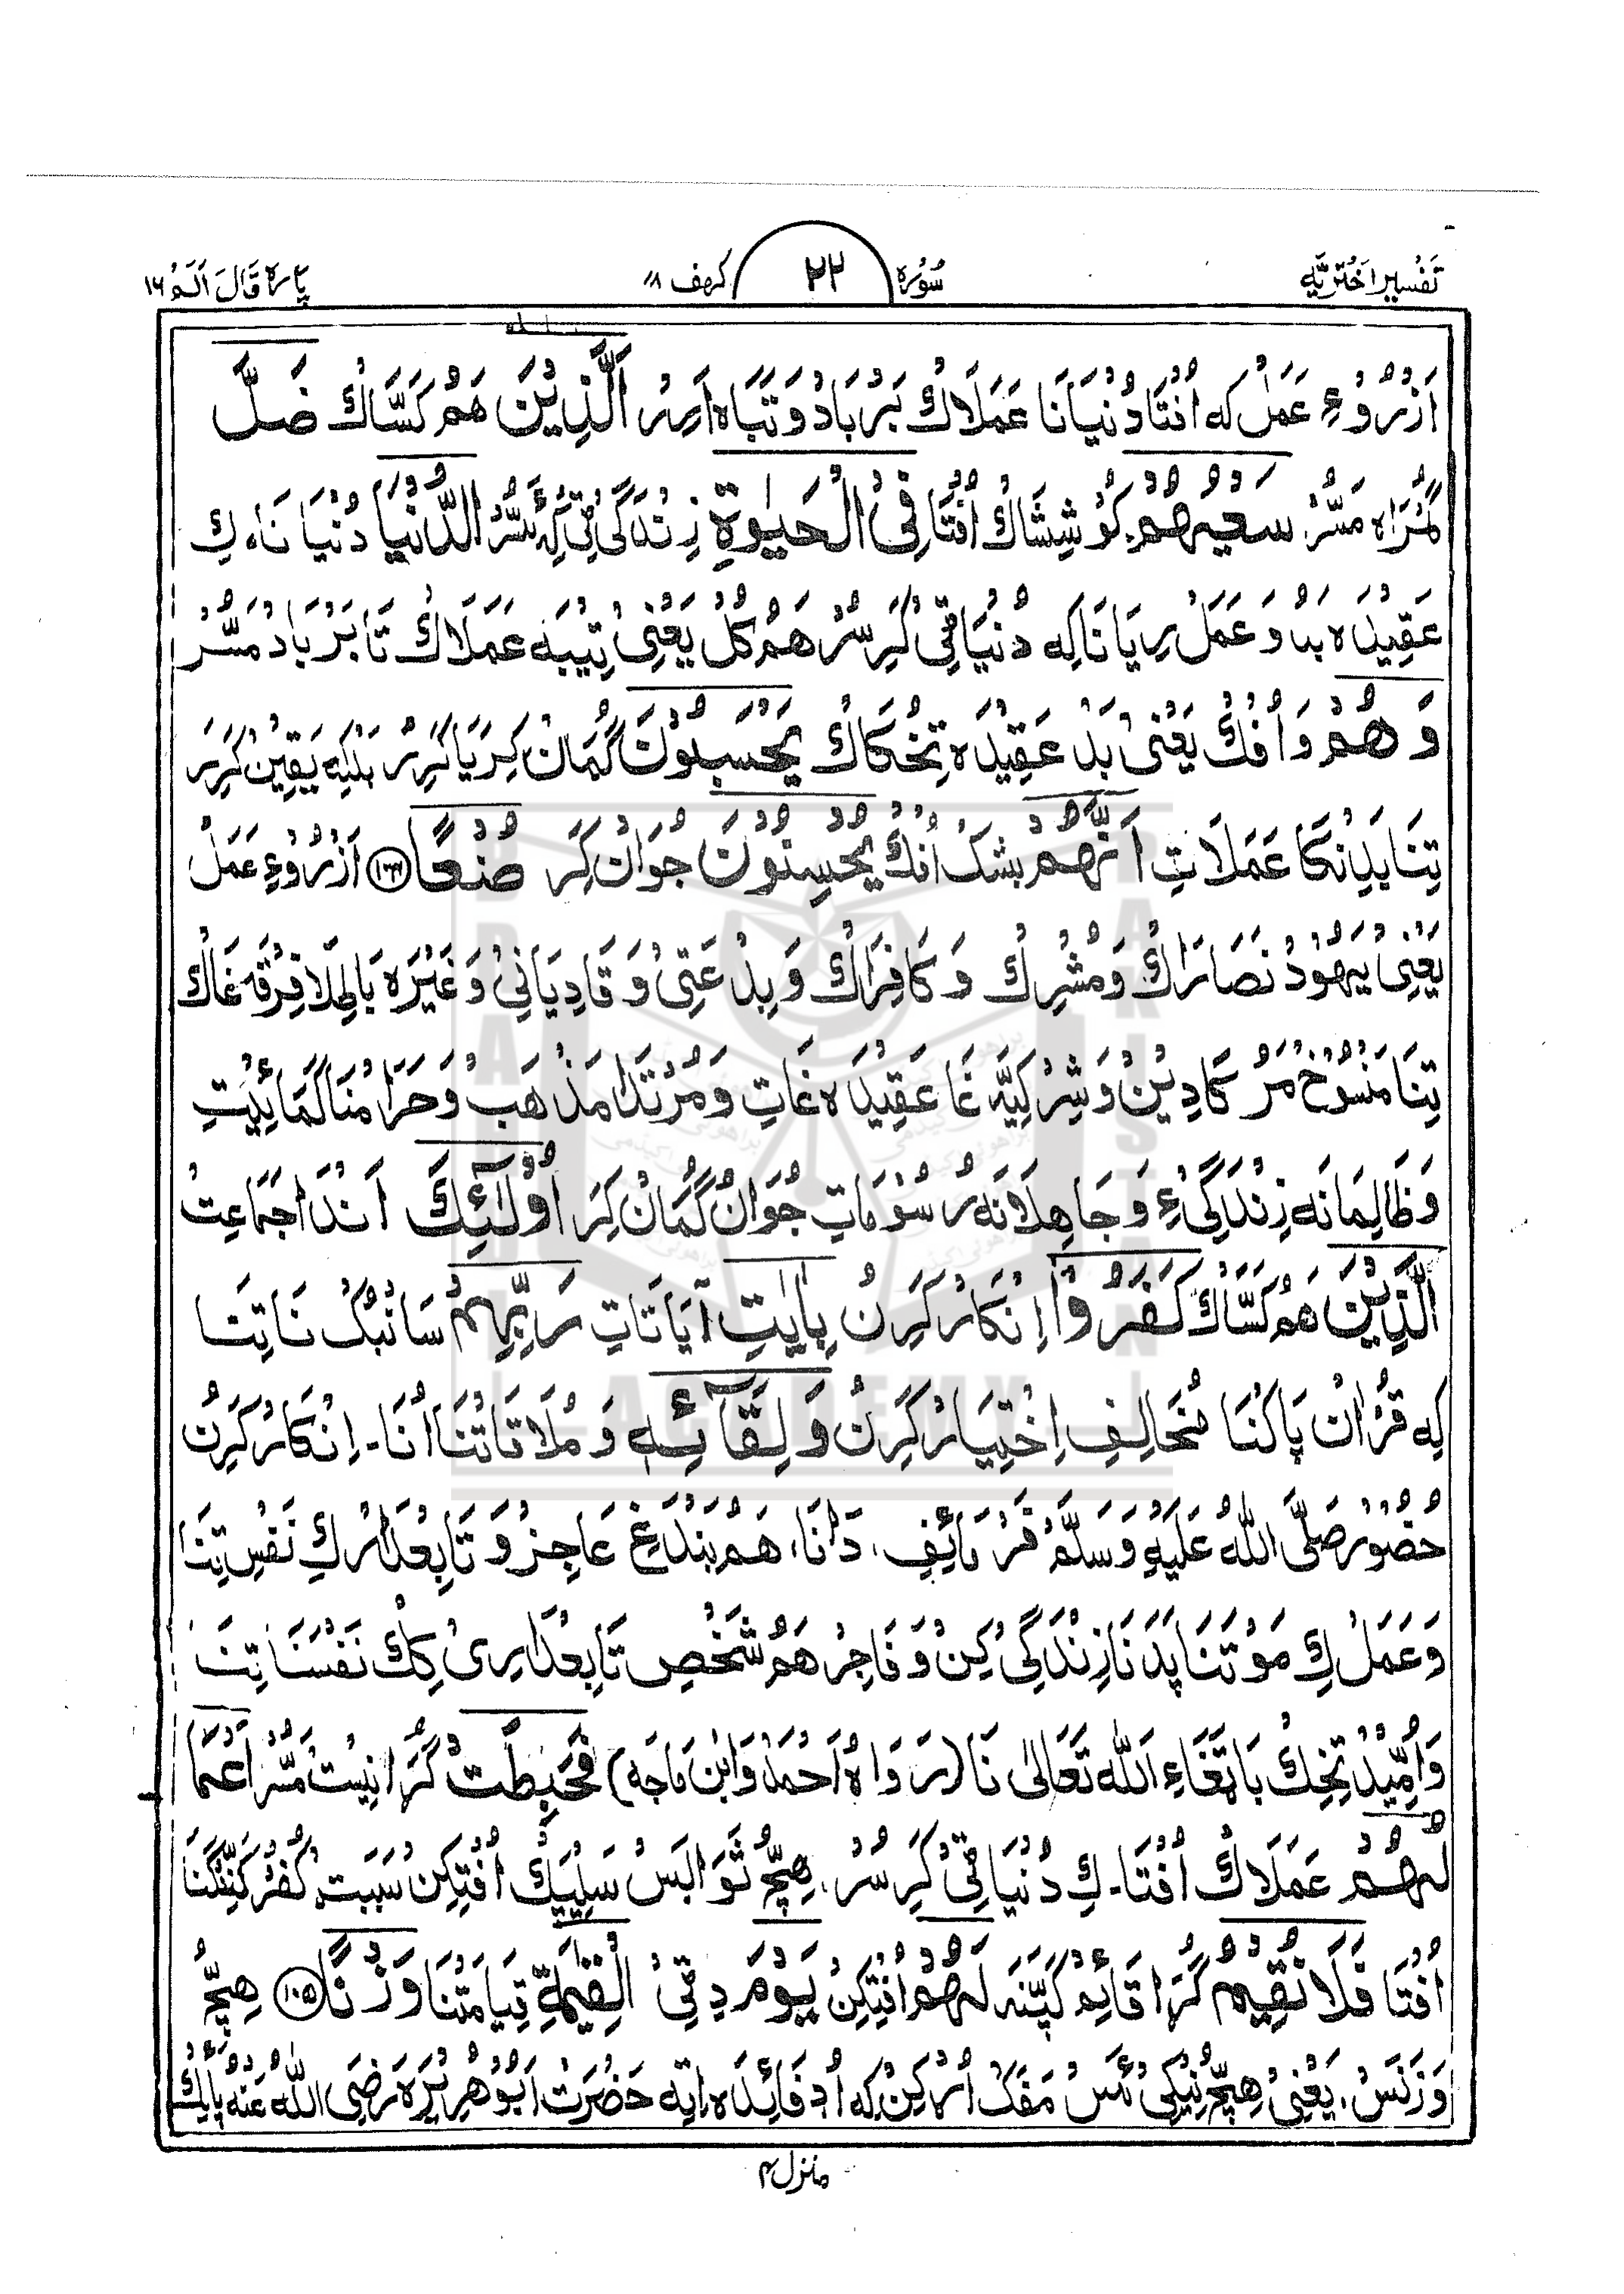 تَفْسِیر اَخْتَرِیَّہ
سُوْرَہ ۲۲ کہف ۱۸
پَارَہ قَالَ اَلَمْ ۱۶
اَزْرُوْءِ عَمَلْ کہ اُفْتَا دُنْیَانَا عَمَلَاکْ بَرْبَادْ وَ تَبَاہ اَرِرْ اَلَّذِیْنَ ھَمْ کَسَّاکْ ضَلَّ
گُمْرَاہ مَسُّرْ سَعْیُھُمْ کُوْشِشَاکْ اُفْتَا فِی الْحَیٰوۃِ زِنْدَگِی ٹِی کِہ ئَسُّرْ الدُّنْیَا دُنْیَا نَا، کِ
عَقِیْدَہ بَدْ وَ عَمَلْ رِیَا نَا کِہ دُنْیَا ٹِی کَرِسُّرْ ھَمْ کُلْ یَعْنِیْ تِیْبَہ عَمَلَاکْ تَا بَرْبَادْ مَسُّرْ
وَھُمْ وَاُفْکْ یَعْنِیْ بَدْ عَقِیْدَہ تِخُکَاکْ یَحْسَبُوْنَ گُمَانْ کِرَ یَا کَرِرْ بَلْکِہ یَقِیْنْ کَرِرَ
تِنَا بَدِنْکَا عَمَلَاتِ اَنَّھُمْ بِشَکْ اُفْکْ یُحْسِنُوْنَ جَوَانْ کِرَ صُنْعًا ۱۰۴ اَزْرُوْءِ عَمَلْ
یَعْنِیْ یَہُوْدْ نَصَارَاکْ وَمُشْرِکْ وَ کَافِرَاکْ وَ بِدْعَتِیْ وَ قَادِیَانِیْ وَ غَیْرَہ بَاطِلَا فِرْقَہ غَاکْ
تِنَا مَنْسُوْخْ مَرُکَا دِیْنْ وَ شِرْکِیَّہ غَا عَقِیْدَہ غَاتِ وَ مُرْتَدَا مَذْھَبْ وَ حَرَامْنَا کَمَائِیْتِ
وَ ظَالِمَانَہ زِنْدَگِیْءِ وَ جَاھِلَانَہ رُسُوْمَاتِ جُوَانْ گُمَانْ کِرَ اُوْلٰٓئِکَ اَنْدَا جَمَاعِتْ
الَّذِیْنَ ھَمْ کَسَّاکْ کَفَرُوْا اِنْکَارْ کَرِنُ بِاٰیٰتِ آیَاتَاتِ رَبِّھِمْ سَانْبُکْ نَا تِنَا
کِہ قُرْاٰنْ پَاکْنَا مُخَالِفِ اِخْتِیَارْ کَرِنُ وَلِقَآئِہٖ وَ مُلَاقَاتْنَا اُنَا۔ اِنْکَارْ کَرِنُ
حُضُوْر صَلَّی اللّٰہُ عَلَیْہِ وَسَلَّمْ فَرْمَائِفِ، دَانَا، ھَمْ بَنْدَغِ عَاجِزْ وَ تَابِعْدَارْ کِ نَفْسِ تِنَا
وَ عَمَلْ کِ مَوْتْنَا پَدْنَا زِنْدَگِیْ کِنْ وَ فَاجِرْ ھَمْ شَخْصِ تَابِعْدَارِیْ کِکْ نَفْسْنَا تِنَا
وَ اُمِّیْدْ تِخِکْ بَا بَقَاءِ اَللّٰہ تَعَالٰی نَا (رَوَاہُ اَحْمَدْ وَابْنِ مَاجَہ) فَحَبِطَتْ گُرَا نِیْسْتْ مَسُّرْ اَعْمَا
لُھُمْ عَمَلَاکْ اُفْتَا۔ کِ دُنْیَا ٹِی کَرِسُرْ، ھِچُّ ثَوَابَسْ سَلِیْپَکْ اُفْتِکِنْ سَبَبَتْ کُفْرْ کَنِّنْگْنَا
اُفْتَا فَلَا نُقِیْمُ گُرَا قَائِمْ کَپَّنَہ لَھُمْ اُفْتِکِنْ یَوْمَ دِ ٹِی الْقِیٰمَۃِ قِیَامَتْنَا وَزْنًا ۱۰۵ ھِچُّ
وَزَنَسْ، یَعْنِیْ ھِچُّ نِیْکِیْ ئَسْ مَفَکْ اُرْکِنْ کِہ اُدْ فَائِدَہ اِیْہ حَضْرَتْ اَبُوْھُرَیْرَہ رَضِیَ اللّٰہُ عَنْہُ پَائِکْ
منزل ۴